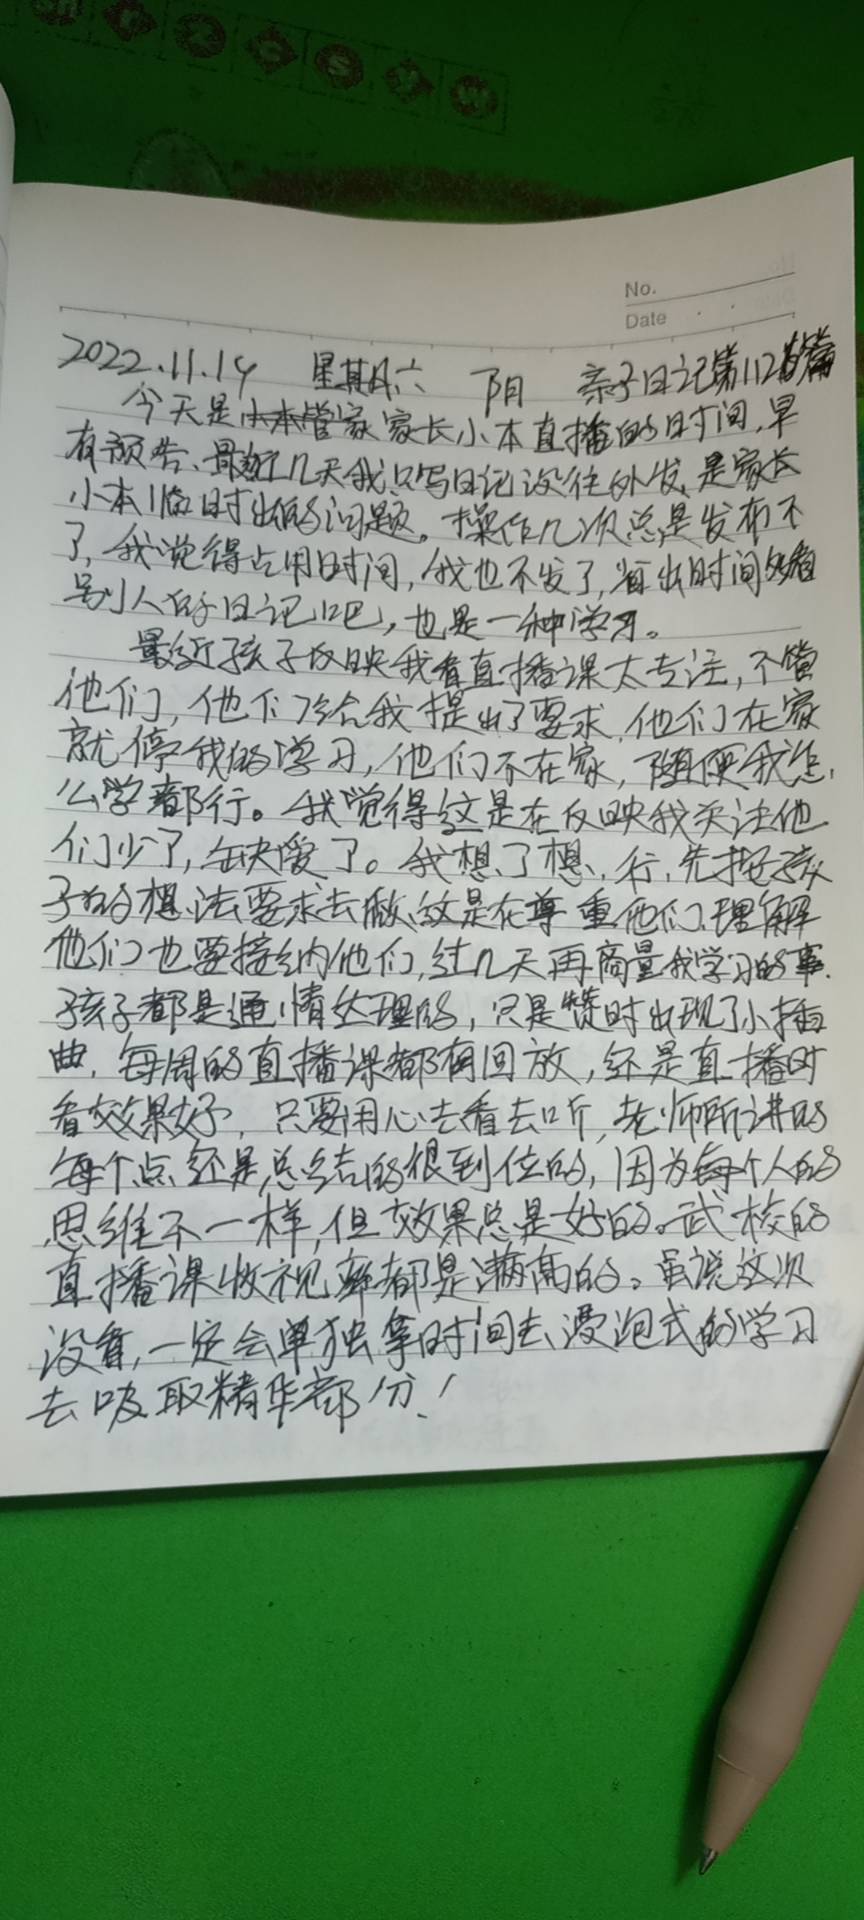 No.
Date
2022.11.19 星期六 阴 亲子日记第112篇
今天是小本管家家长小本直播的时间,早
有预告、最近几天我只写日记没往外发,是家长
小本临时出的问题。操作几次总是发布不
了,我觉得占用时间,我也不发了,省出时间多看
别人的日记吧,也是一种学习。
最近孩子反映我看直播课太专注,不管
他们,他们给我提出了要求,他们在家
就停我的学习,他们不在家,随便我怎
么学都行。我觉得这是在反映我关注他
们少了,缺爱了。我想了想,行,先按孩
子的想法要求去做,这是在尊重他们、理解
他们也要接纳他们,过几天再商量我学习的事.
孩子都是通情达理的,只是暂时出现了小插
曲,每周的直播课都有回放,还是直播时
看效果好,只要用心去看去听,老师所讲的
每个点还是总结的很到位的,因为每个人的
思维不一样,但效果总是好的。武校的
直播课收视率都是满高的。虽说这次
没看,一定会单独拿时间去浸泡式的学习
去吸取精华部分!